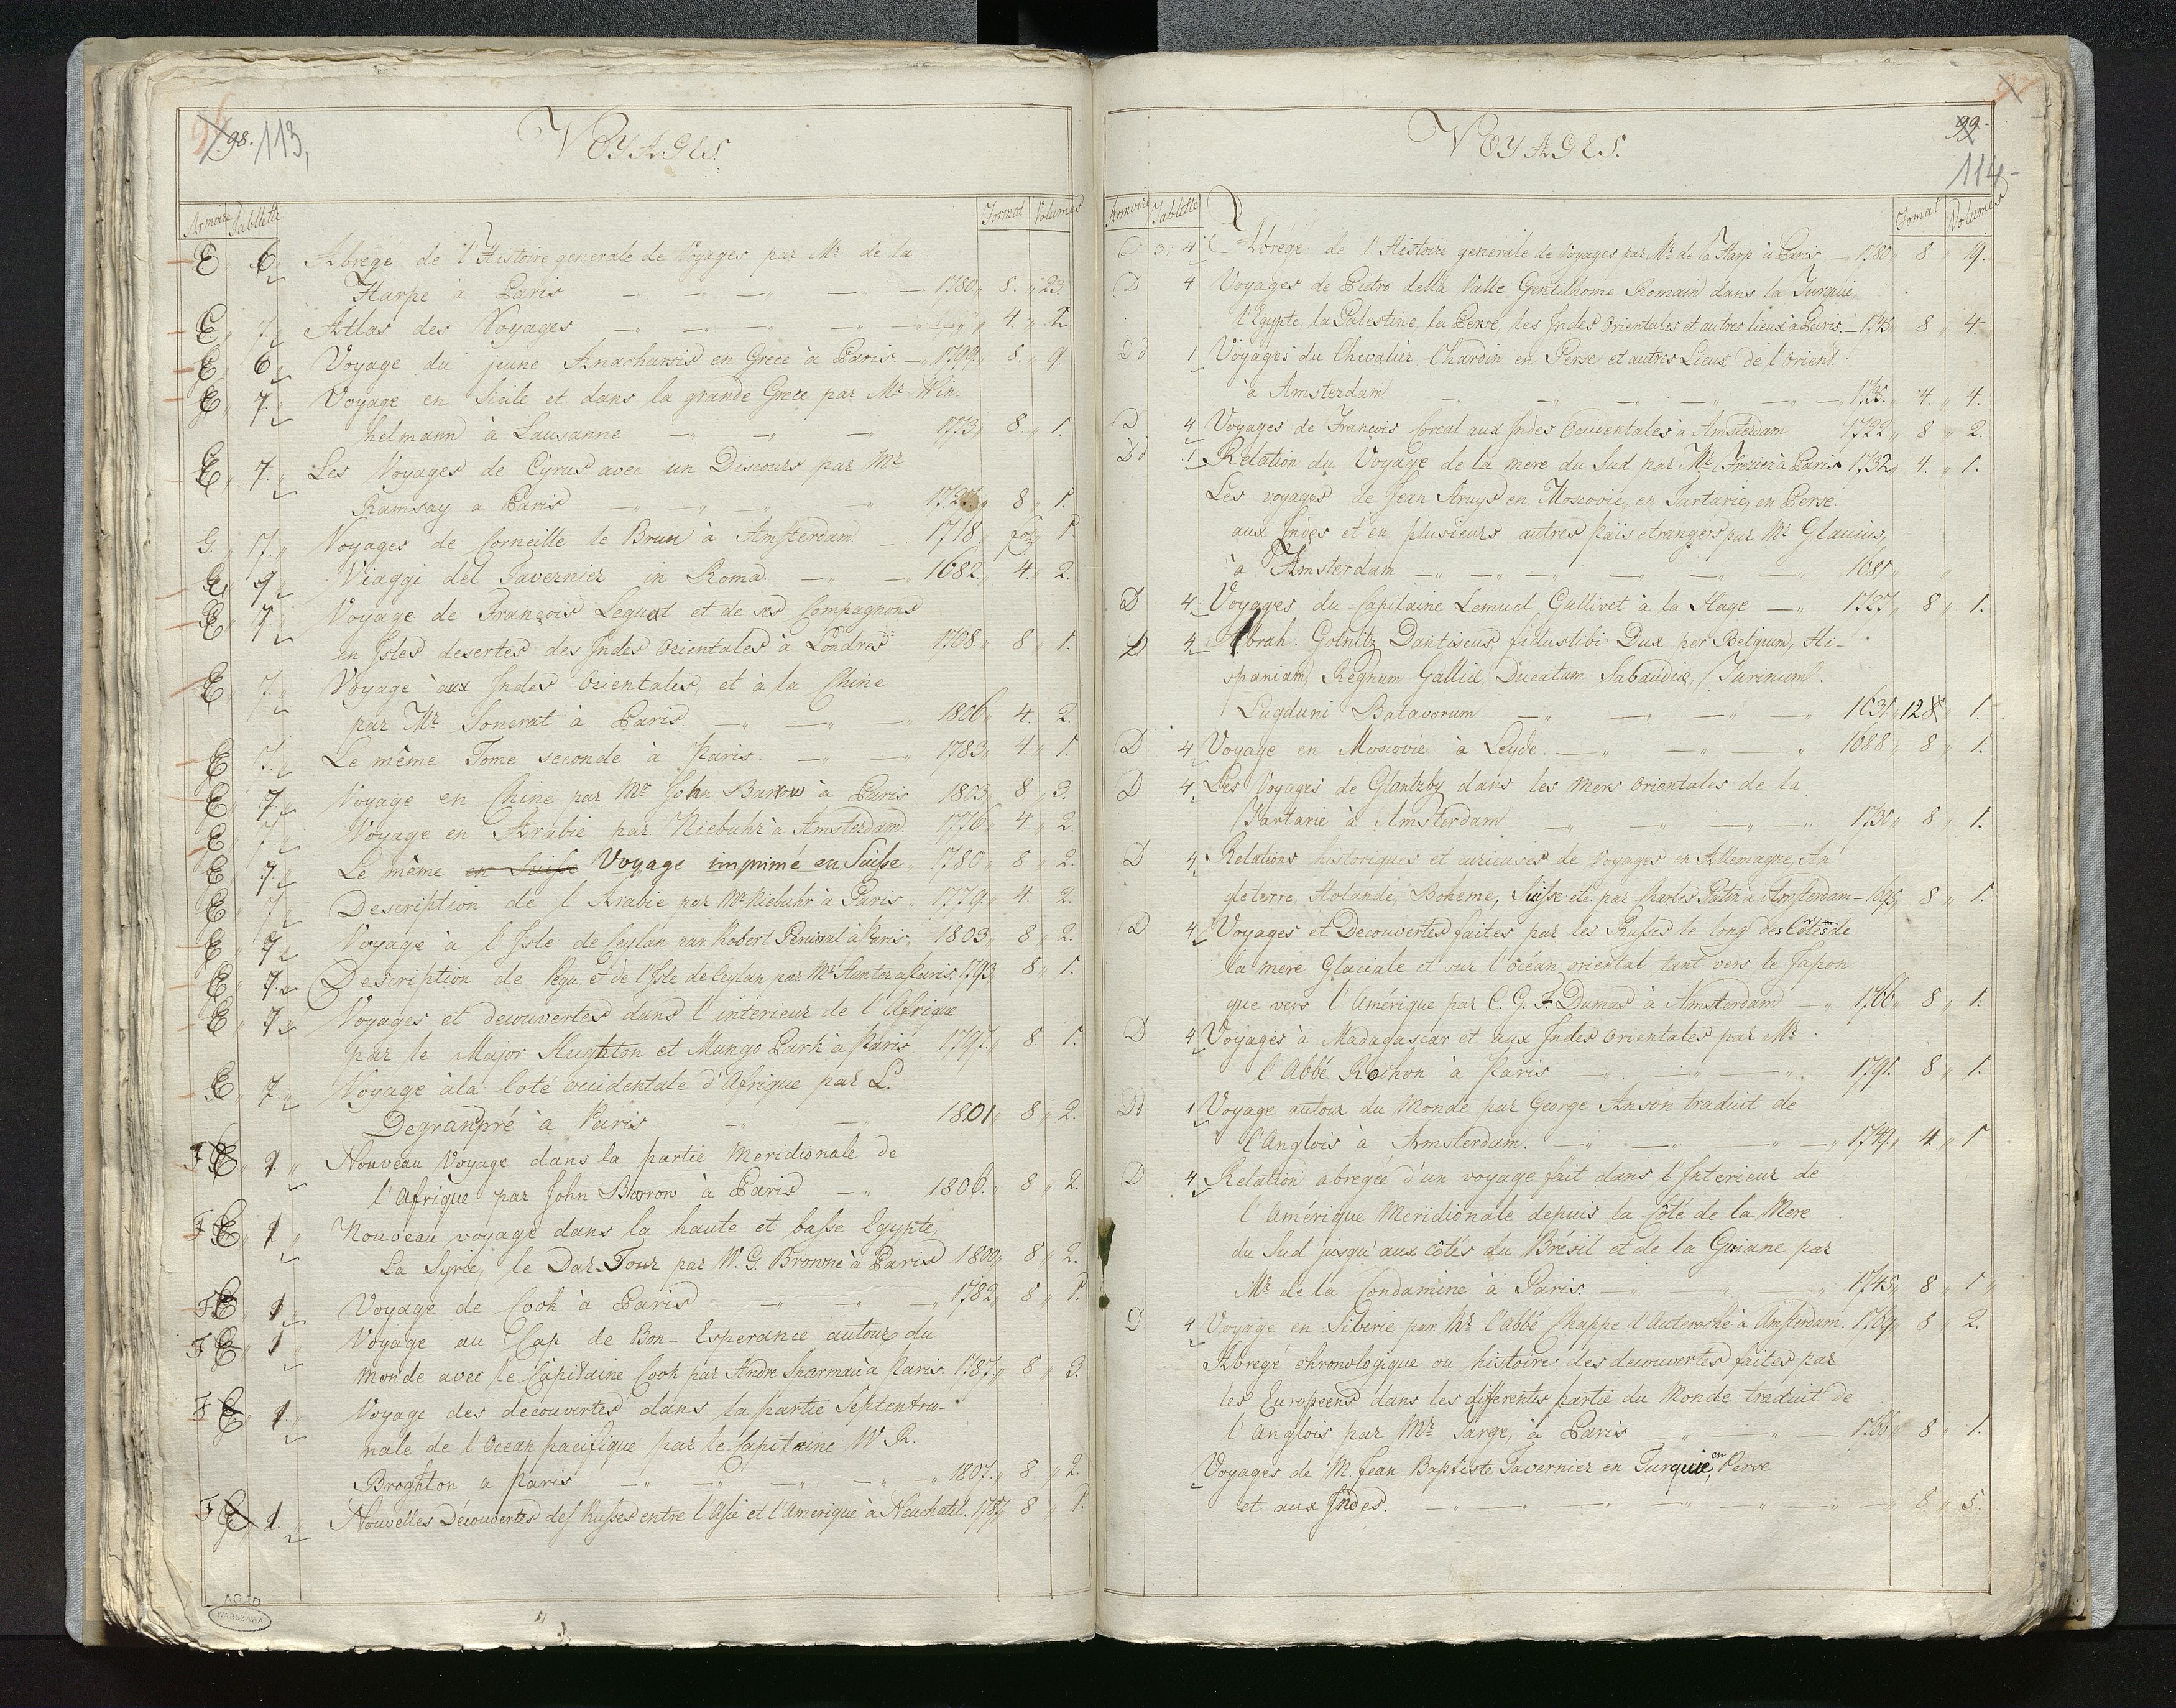 98. 113,
VOYAGES.
Armoire Tablette Format Volumes
E 6 Abregé de l'Histoire generale de Voyages par Mr de la
Harpe à Paris 1780 8. 23.
E 7. Atlas des Voyages 4. 1.
E 6 Voyage du jeune Anacharsis en Grece à Paris 1799. 8. 9.
E 7. Voyage en Sicile et dans la grande Grece par Mr Win-
helmann à Lausanne 1773 8. 1.
E 7. Les Voyages de Cyrus avec un Discours par Mr
Ramsay a Paris 8 1.
G. 17. Voyages de Corneille le Brun à Amsterdam 1718 fol. 1.
E 9 Viaggi del Tavernier in Roma. 1682. 4. 2.
E 7. Voyage de François Leguat et de ses Compagnons
en Isles desertes des Indes Orientales à Londres 1708. 8 1.
E 7. Voyage aux Indes Orientales, et à la Chine
par Mr Sonerat à Paris. 1806 4. 2.
E 7. Le même Tome seconde à Paris. 1783 4. 1.
E 7. Voyage en Chine par Mr John Barrow à Paris 1803 8 3.
E 7. Voyage en Arabie par Niebuhr à Amsterdam. 1776 4. 2.
E 7 Le même en Suisse Voyage imprimé en Suisse 1780 8 2.
E 7 Description de l'Arabie par Mr Niebuhr à Paris 1779. 4. 2.
E 7 Voyage à l'Isle de Ceylan par Robert Percival à Paris 1803 8 2.
E 7. Description de Pegu et de l'Isle de Ceylan par Mr Hunter a Paris 1793 8 1.
E 7 Voyages et decouvertes dans l'interieur de l'Afrique
par le Major Hughton et Mungo Park à Paris 1797. 8. 1.
E 7 Voyage à la Coté occidentale d'Afrique par L.
Degranpré à Paris 1801 8 2.
F E 1 Nouveau Voyage dans la partie Meridionale de
l'Afrique par John Barrow à Paris 1806. 8 2.
F E 1 Nouveau voyage dans la haute et basse Egypte
La Syrie, le Dar-Four par W. G. Browne à Paris 1800 8 2.
F E 1. Voyage de Cook à Paris 1782 8 1.
F E 1 Voyage au Cap de Bon-Esperance autour du
monde avec le Capitaine Cook par Andre Sparmau à Paris. 1787 8 3.
F E 1. Voyage des decouvertes dans la partie Septentrio-
nale de l'Ocean pacifique par le Capitaine W. R.
Broghton a Paris 1807. 8 2.
F E 1. Nouvelles Découvertes des Russes entre l'Asie et l'Amerique à Neuchatel. 1787 8 1.
AGAD
WARSZAWA
99.
114-
VOYAGES.
Armoire Tablette Fomat Volumes
D 3. 4 Abregé de l'Histoire generale de Voyages par Mr de la Harp à Paris 1780 8 19.
D 4 Voyages de Pietro della Valle Gentilhome Romain dans la Turquie,
l'Egypte, la Palestine, la Perse, les Indes Orientales et autres lieux à Paris. 1745 8 4.
Dd 1 Voyages du Chevalier Chardin en Perse et autres Lieux de l'Orient
à Amsterdam 1735. 4. 4.
D 4 Voyages de François Coreal aux Indes Occidentales à Amsterdam 1722. 8 2.
Dd 1 Relation du Voyage de la mere du Sud par Mr Frezier à Paris 1732 4. 1.
Les voyages de Jean Struys en Moscovie, en Tartarie, en Perse.
aux Indes et en plusieurs autres païs etrangers par Mr Glanius,
à Amsterdam 1681
D 4 Voyages du Capitaine Lemuel Gullivet à la Haye 1727 8 1.
D 4 Abrah. Golnitz Dantiscus, fidus tibi Dux per Belgium, Hi-
spaniam, Regnum Galliæ, Ducatum Sabaudiæ, Turinum.
Lugduni Batavorum 1631 12 1.
D 4 Voyage en Moscovie à Leyde. 1688 8 1.
D 4. Les Voyages de Glantzby dans les mers orientales de la
Tartarie à Amsterdam 1730 8 1.
D 4. Relations historiques et curieuses de Voyages en Allemagne, An-
gleterre, Holande, Boheme, Suisse etc. par Charles Patin à Amsterdam 1695 8 1.
D 4 Voyages et Decouvertes faites par les Russes le long des Côtes de
la mere Glaciale et sur l'océan oriental tant vers le Japon
que vers l'Amérique par C. G. F. Dumas à Amsterdam 1766 8 1.
D 4 Voyages à Madagascar et aux Indes Orientales par Mr
l'Abbé Rochon à Paris 1791. 8 1.
Dd 1 Voyage autour du Monde par George Anson traduit de
l'Anglois à Amsterdam. 1749. 4 1
D 4 Relation abregée d'un voyage fait dans l'Interieur de
l'Amérique Meridionale depuis la Côté de la Mere
du Sud jusqu'aux côtés du Brésil et de la Guiane par
Mr de la Condamine à Paris. 1745 8 1
D 4 Voyage en Siberie par Mr l'Abbé Chappe d'Auteroche à Amsterdam. 1769 8 2.
Abregé chronologique ou histoire des decouvertes faites par
les Europeens dans les differentes partie du Monde traduit de
l'Anglois par Mr Targe, à Paris 1766 8 1.
Voyages de M. Jean Baptiste Tavernier en Turquie, en Perse
et aux Indes. 8 5.